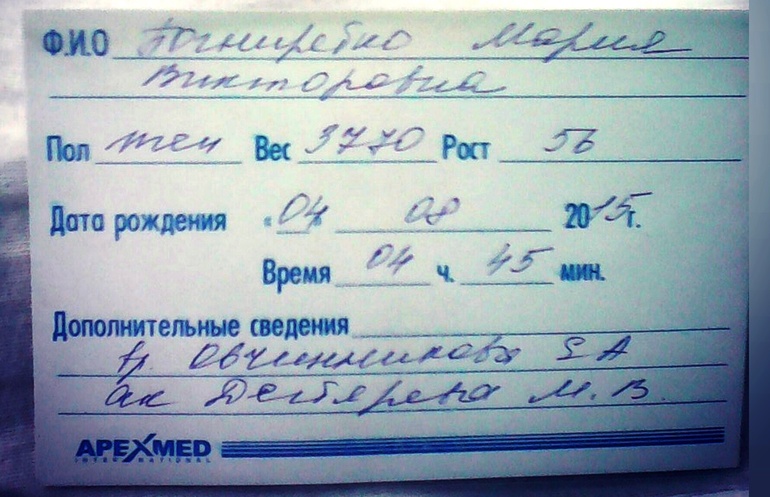 Ф.И.О Погнирейко Мария
Викторовна
Пол жен Вес 3770 Рост 56
Дата рождения «04» 08 2015г.
Время 04 ч. 45 мин.
Дополнительные сведения
Вр. Овчинникова Е А
ак Дегтярева М. В.
APEXMED
INTERNATIONAL